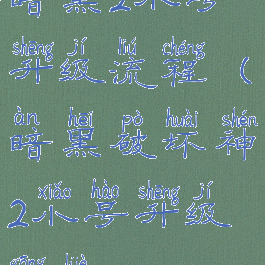 暗黑2小号
shēng jí liú chéng
升级流程（
àn hēi pò huài shén
暗黑破坏神
xiǎo hào shēng jí
2小号升级